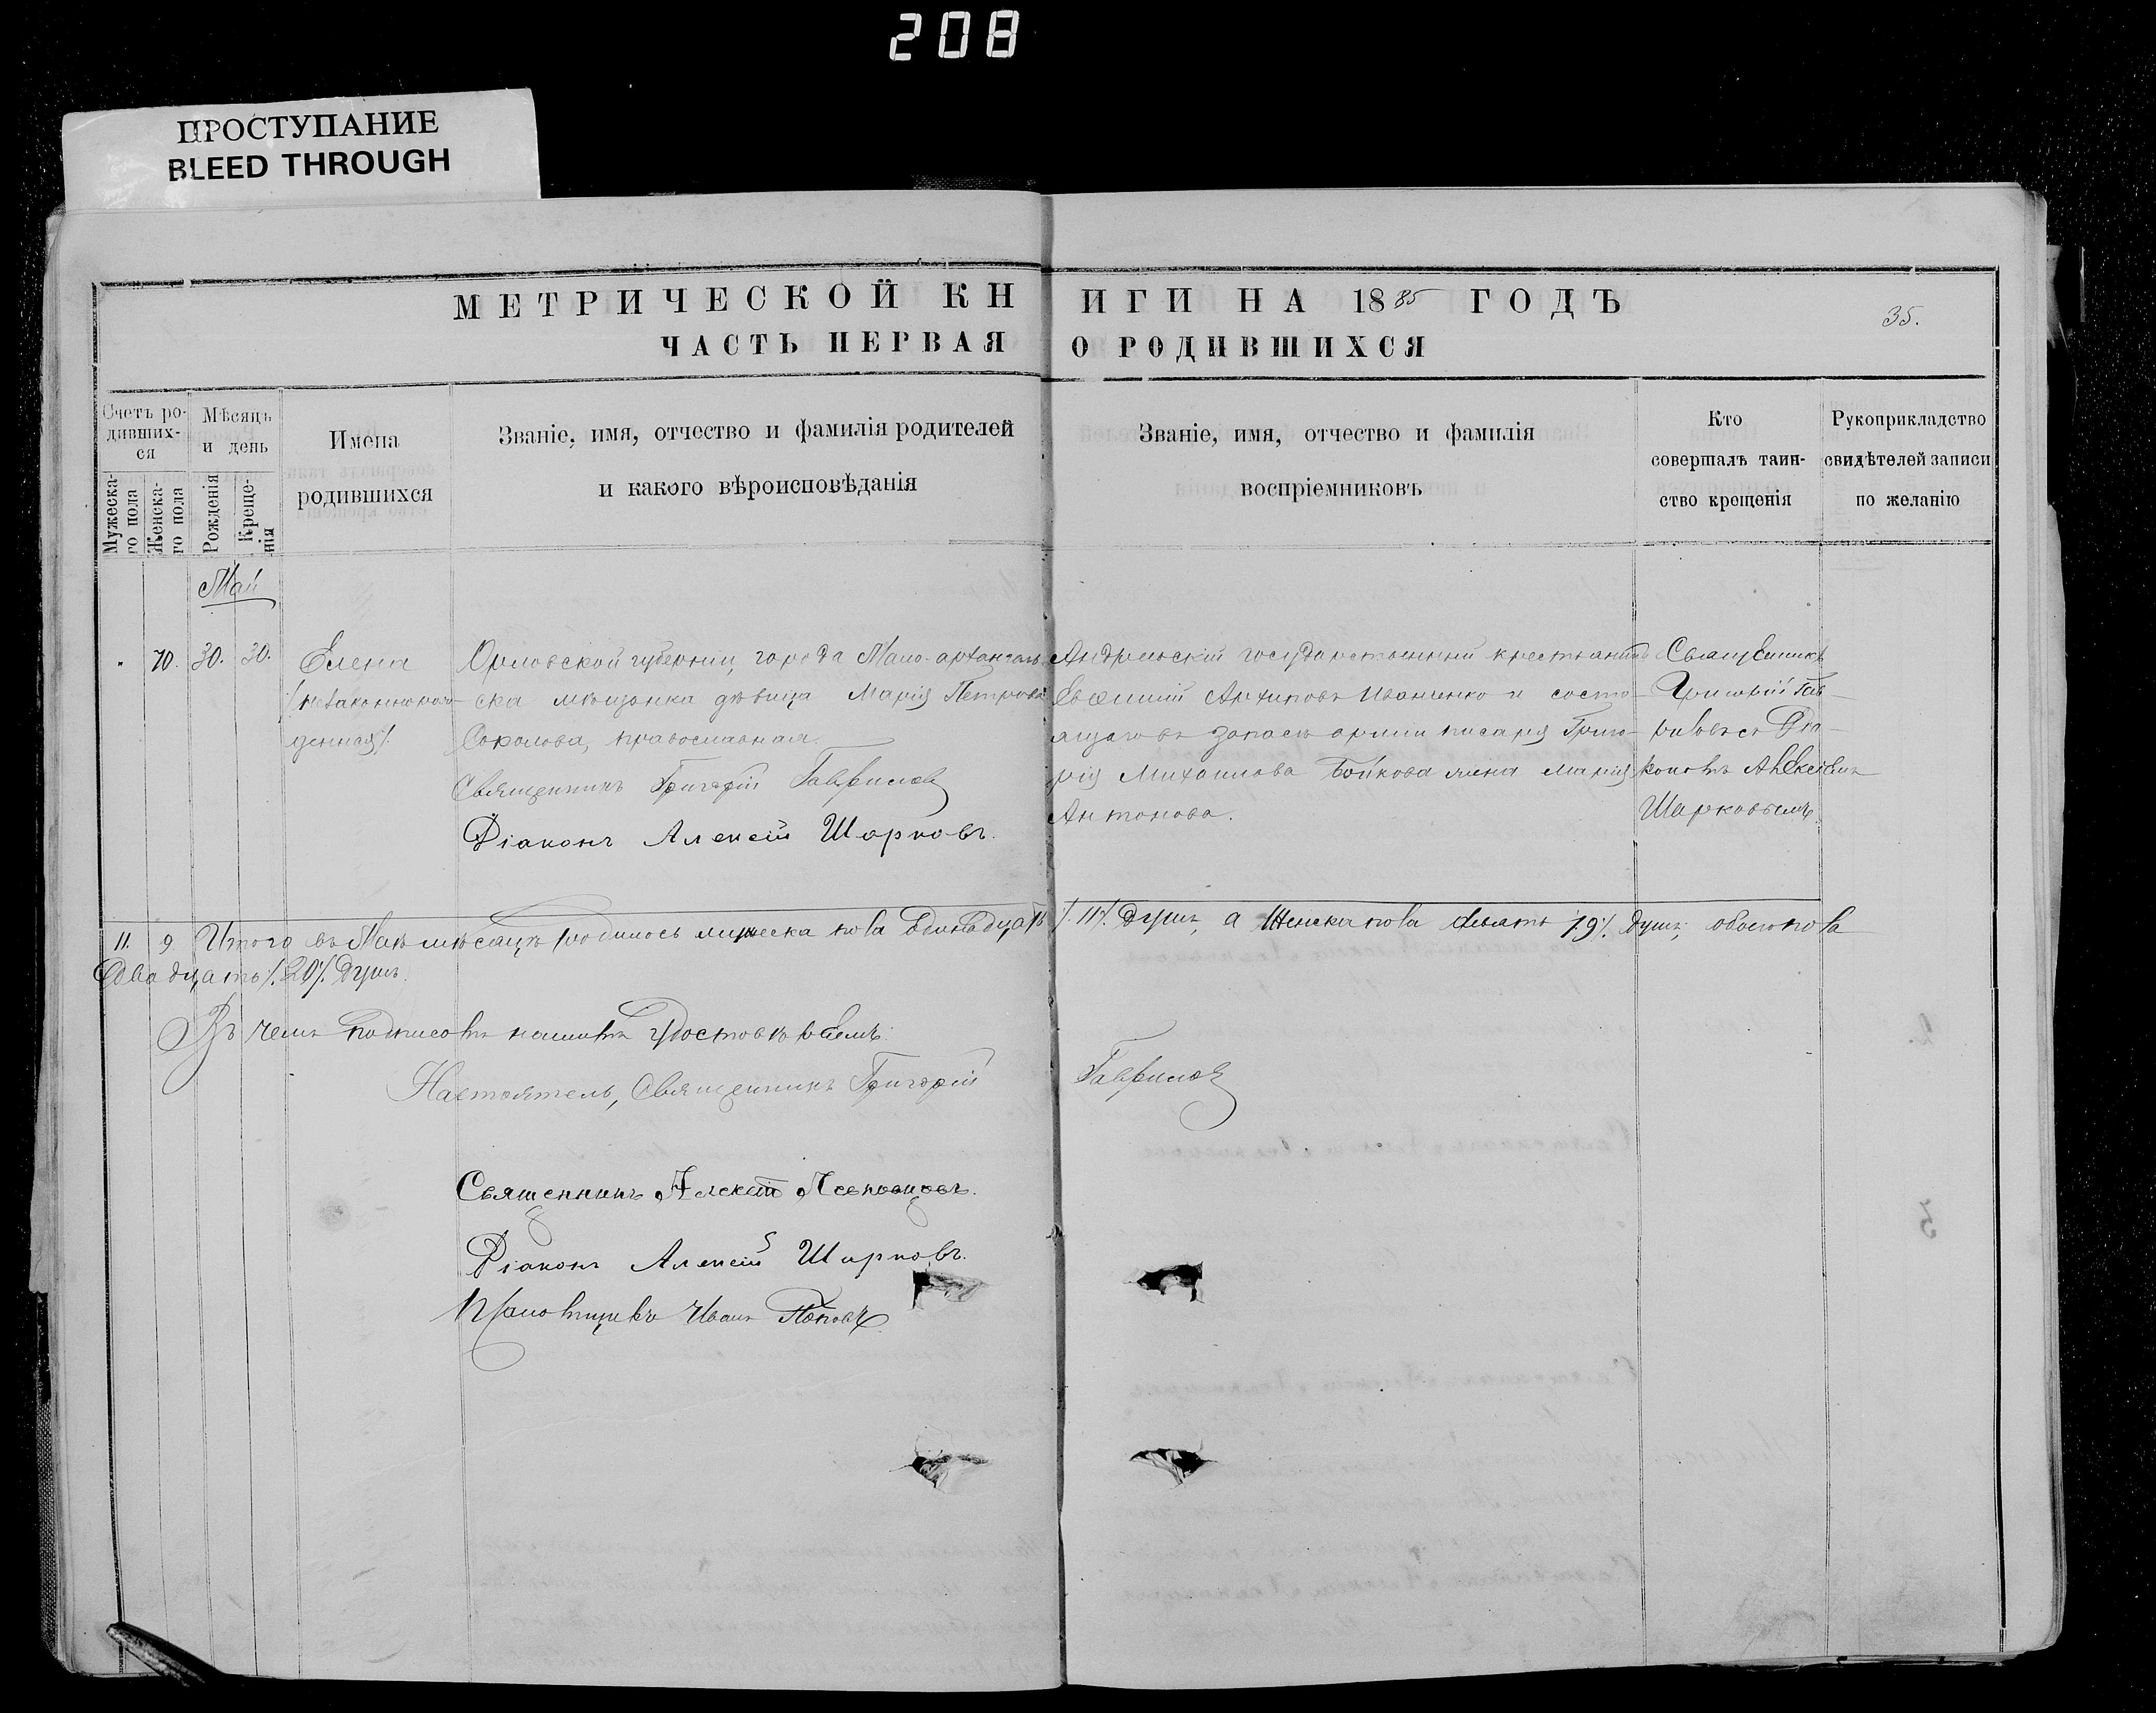 208
ПРОСТУПАНИЕ
BLEED THROUGH
МЕТРИЧЕСКОЙ КНИГИ НА 1885 ГОДЪ
35.
ЧАСТЬ ПЕРВАЯ О РОДИВШИХСЯ
Счетъ ро-
дивших-
ся
Мужеска-
го пола
Женска-
го пола
Мѣсяцъ
и день
Рожденія
Креще-
нія
Имена
родившихся
Званіе, имя, отчество и фамилія родителей
и какого вѣроисповѣданія
Званіе, имя, отчество и фамилія
воспріемниковъ
Кто
совершалъ таин-
ство крещенія
Рукоприкладство
свидѣтелей записи
по желанію
Май
" 70. 30. 30.
Елена
(незаконнорож-
денная).
Орловской губерніи, города Мало-архангель-
ска мѣщанка дѣвица Марія Петрова
Соколова, православная.
Священникъ Григорій Гавриловъ
Діаконъ Алексій Шарковъ.
государственный крестьянинъ
Евѳимій Антиповъ Иванченко и состо-
ящаго въ запасѣ арміи писаря Григо-
рія Михаилова Бойкова жена Марія
Антонова.
Священникъ
Григорій Гав-
риловъ съ Діа-
кономъ Алексіемъ
Шарковымъ.
11. 9. Итого въ Маѣ мѣсяцѣ родилось мужеска пола одинадцать /.11/. душъ, а женска пола девять /.9/. душъ, обоего пола
двадцать /.20/. душъ.
Въ чемъ подписомъ нашимъ удостовѣряемъ:
Настоятель, Священникъ Григорій Гавриловъ
Священникъ Алексій
Діаконъ Алексій Шарковъ.
Псаломщикъ Иванъ Поповъ